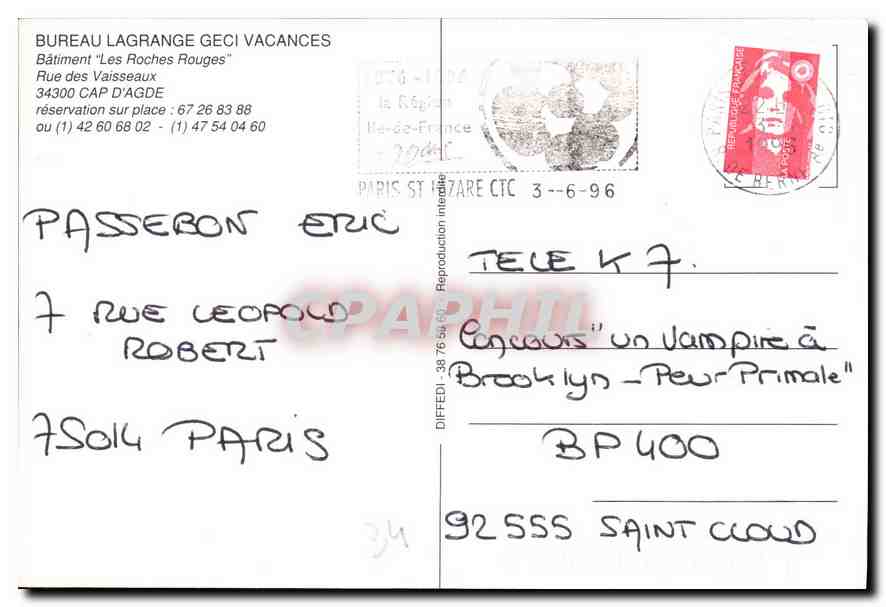 BUREAU LAGRANGE GECI VACANCES
Bâtiment "Les Roches Rouges"
Rue des Vaisseaux
34300 CAP D'AGDE
réservation sur place : 67 26 83 88
ou (1) 42 60 68 02 - (1) 47 54 04 60
1976-1996
la Région
Ile-de-France
PARIS ST LAZARE CTC 3--6-96
REPUBLIQUE FRANÇAISE
LA POSTE
PASSEBON ERIC
7 RUE LEOPOLD
ROBERT
75014 PARIS
DIFFEDI - 38 76 50 60 - Reproduction interdite
TELE K 7.
Concours "un vampire à
Brooklyn - Peur Primale"
BP 400
92555 SAINT CLOUD
34
CPAPHIL